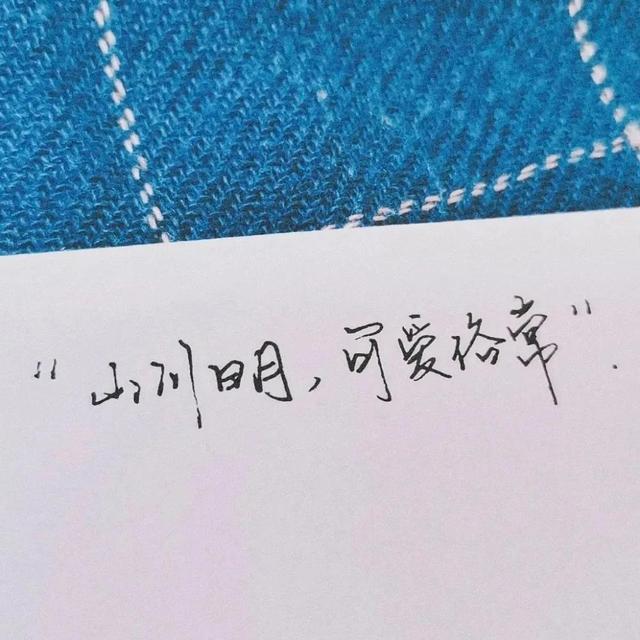 “山川日月，可爱俗常”.